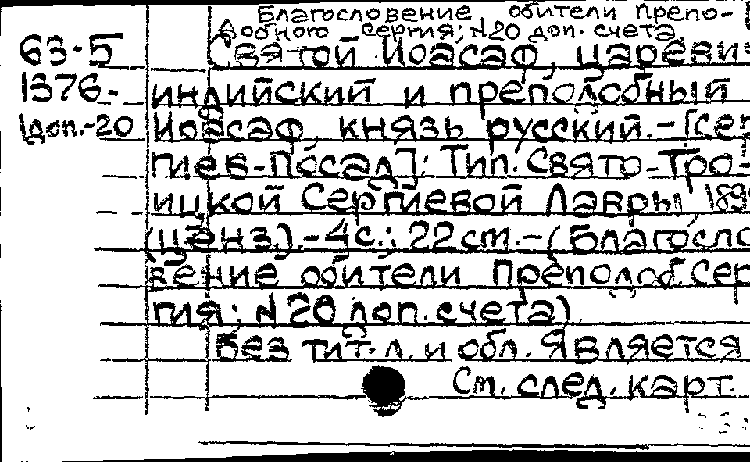 Благословение обители Препо-
добного Сергия; N20 доп. счета
63-5 Святой Иоасаф, царевич
1376- индийский и преподобный
1доп.-20 Иоасаф, князь русский. – [Сер
гиев-Посад]: Тип. Свято-Тро-
ицкой Сергиевой Лавры 189
(ценз.). – 4 с.; 22 см. – (Благосло
вение обители Препод. Сер
гия; N 20 доп. счета)
Без тит. л. и обл. Является
См. след. карт.